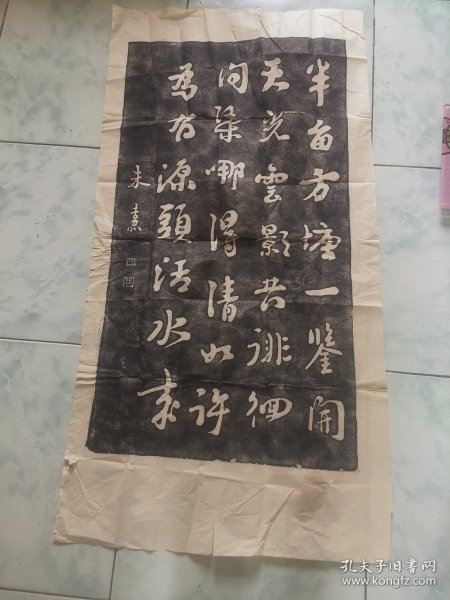 半亩方塘一鑒開
天光雲影共徘徊
问渠哪得清如许
為有源頭活水来
朱熹
孔夫子旧书网
www.kongfz.com